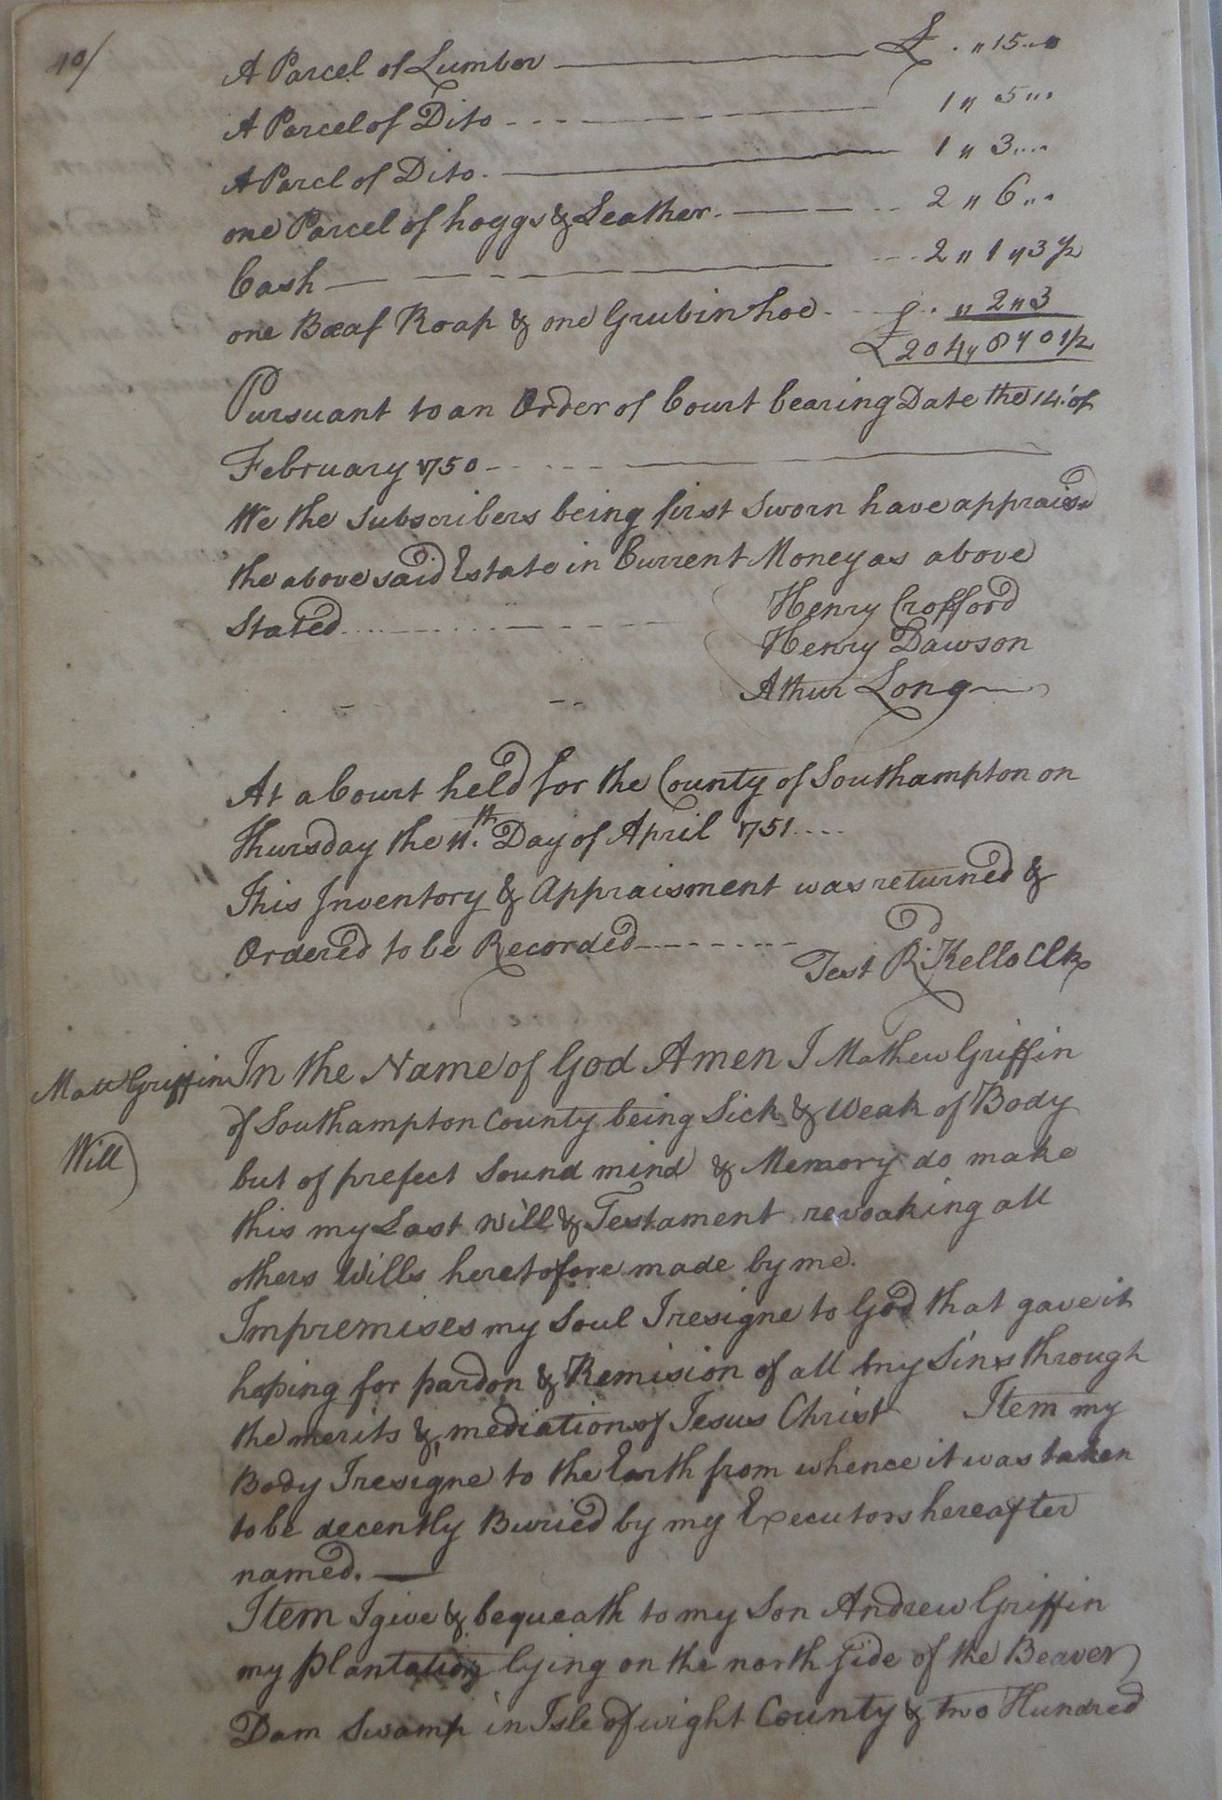 40/
A Parcel of Lumber £ . " 15 . "
A Parcel of Dito 1 " 5 " .
A Parcl of Dito 1 " 3 ...
one Parcel of hoggs & Leather 2 " 6 " .
Cash 2 " 1 " 3 1/2
one Bæaf Roap & one Grubin hoe . " 2 " 3
£ 204 " 8 " 0 1/2
Pursuant to an Order of Court bearing Date the 14. of
February 1750
We the subscribers being first Sworn have appraisd
the above said Estate in Current Money as above
Stated
Henry Crofford
Henry Dawson
Athur Long
At a Court held for the County of Southampton on
Thursday the 11th. Day of April 1751
This Inventory & Appraisment was returned &
Ordered to be Recorded
Test Rd. Kello Clk
Matt Griffin
Will
In the Name of God Amen I Mathew Griffin
of Southampton County being Sick & Weak of Body
but of prefect Sound mind & Memory do make
this my Last Will & Testament revoaking all
others Wills heretofore made by me.
Impremises my Soul I resigne to God that gave it
hoping for pardon & Remision of all my Sins through
the merits & mediation of Jesus Christ Item my
Body I resigne to the Earth from whence it was taken
to be decently Buried by my Executors hereafter
named.
Item I give & bequeath to my Son Andrew Griffin
my plantation lying on the north side of the Beaver
Dam Swamp in Isle of wight County & two Hundred